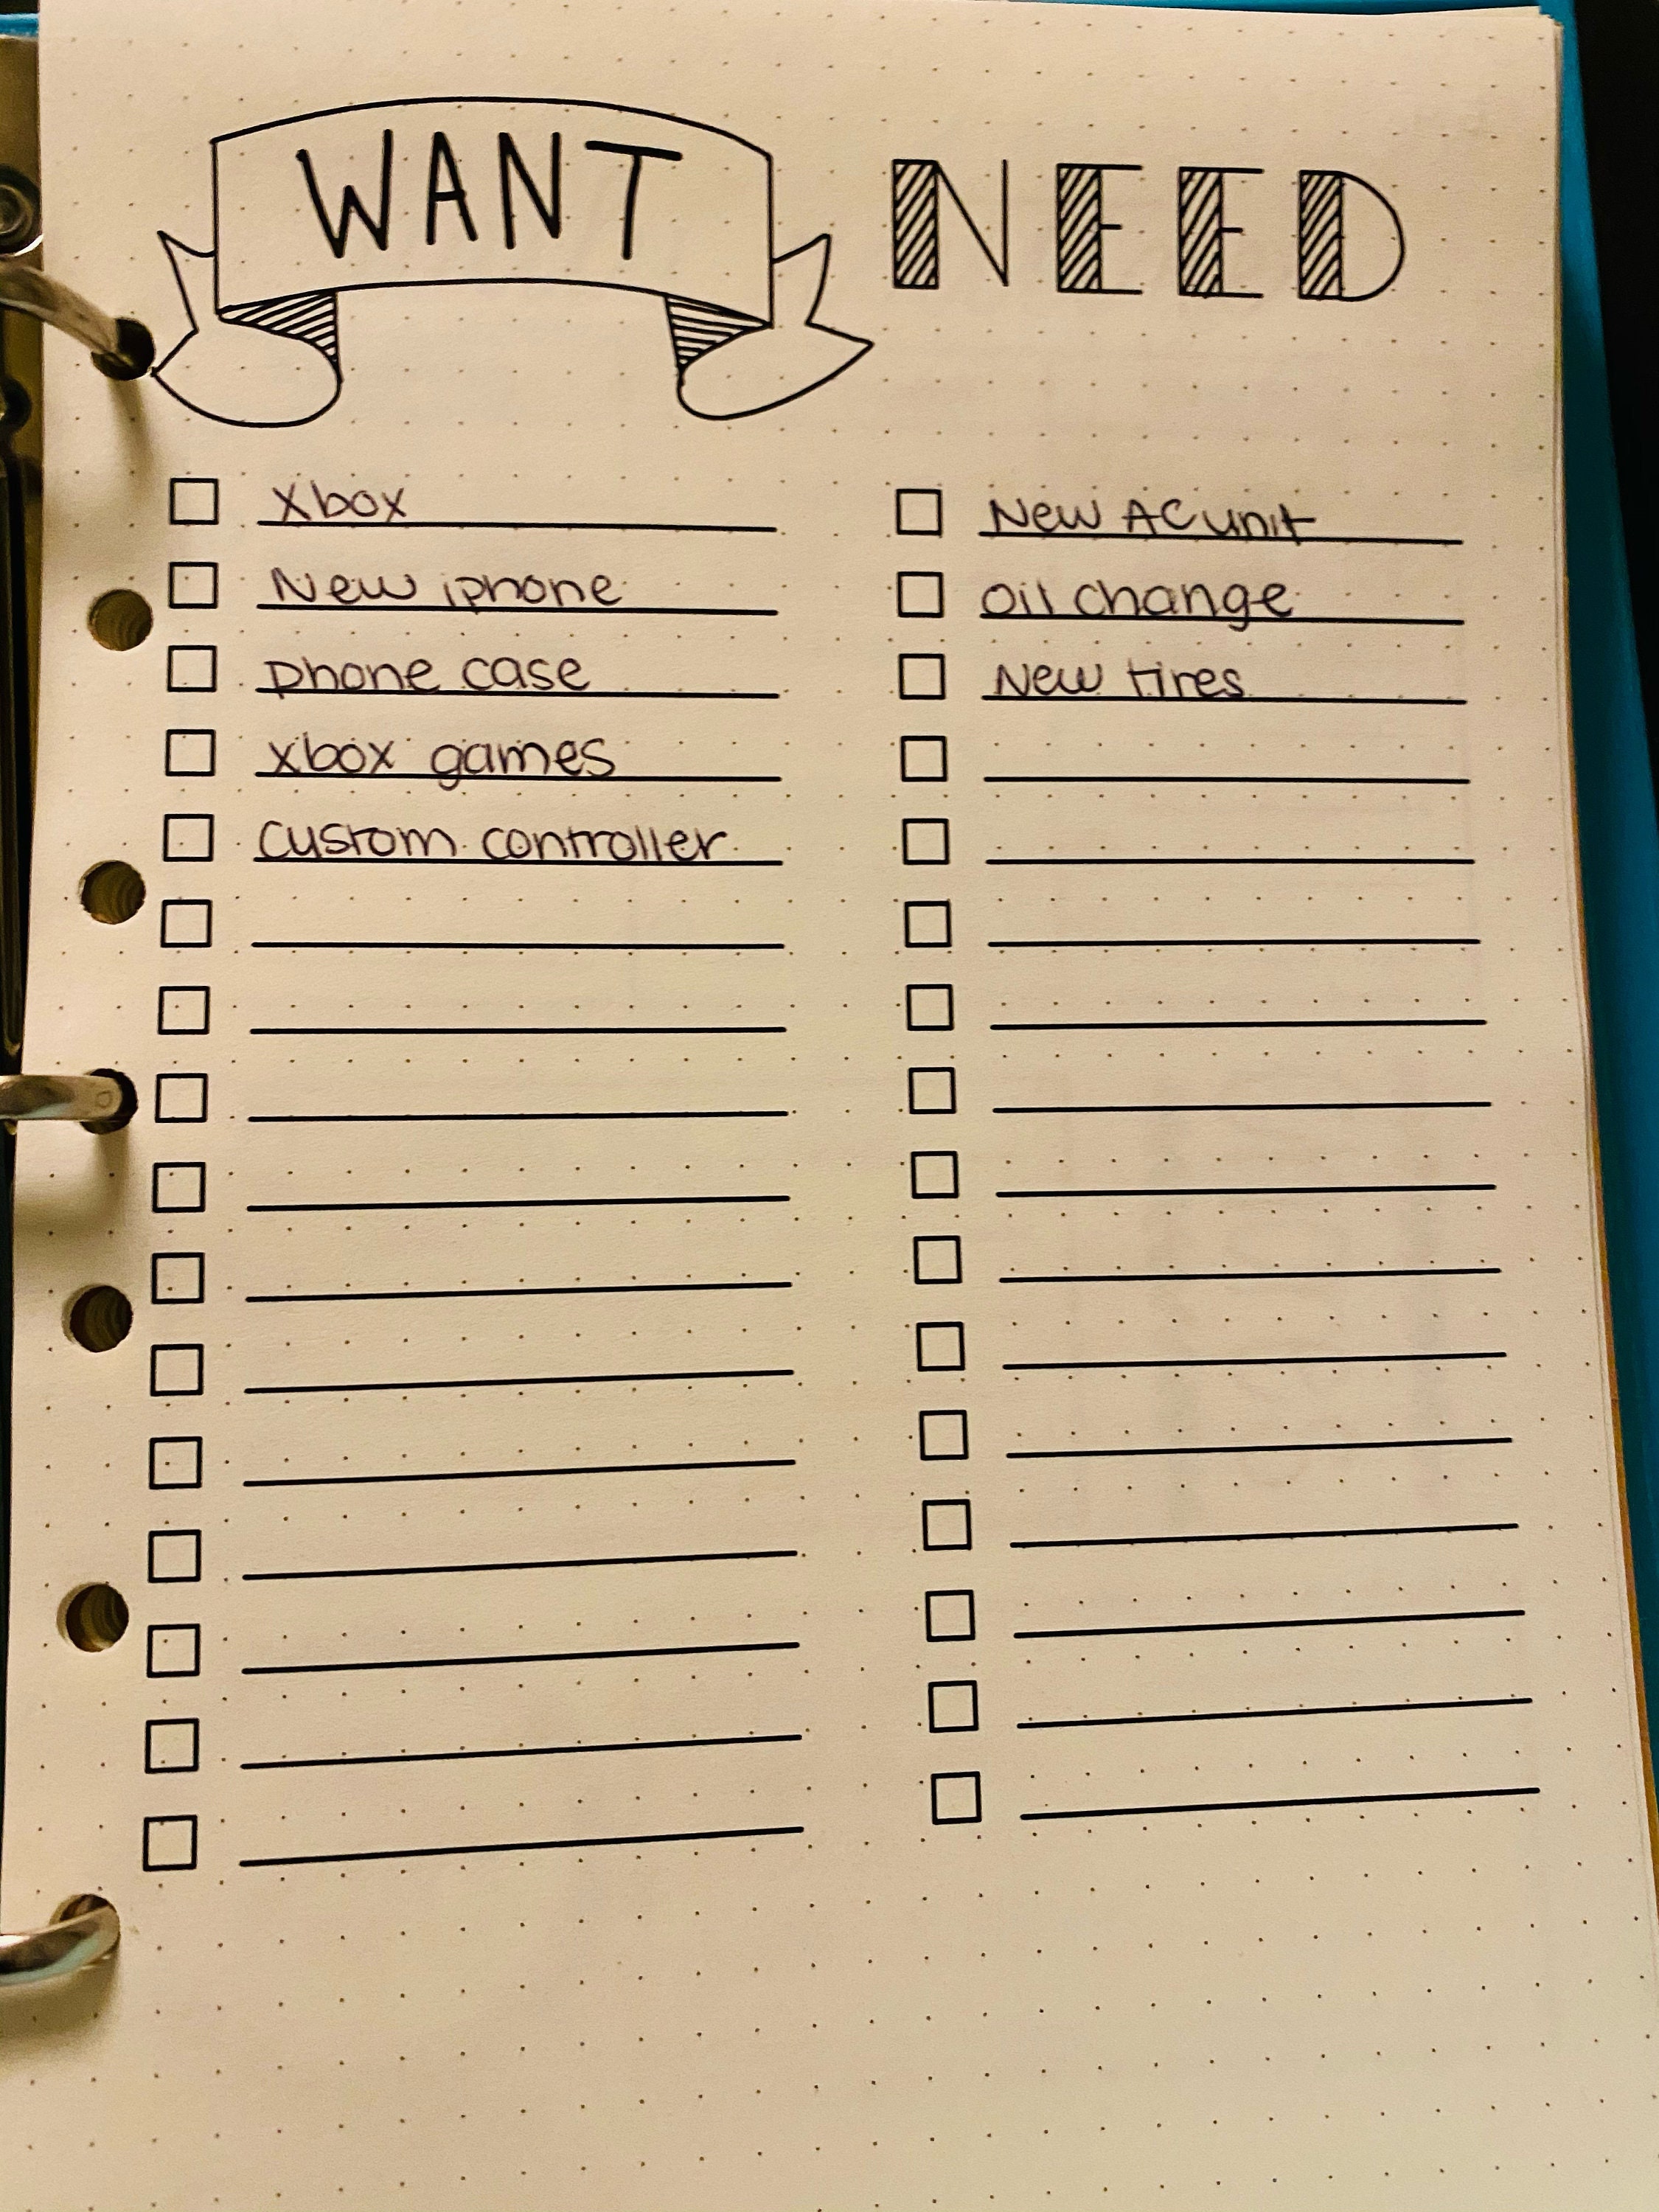 WANT
Xbox
New iphone
phone case
xbox games
custom controller
NEED
New AC unit
oil change
New tires